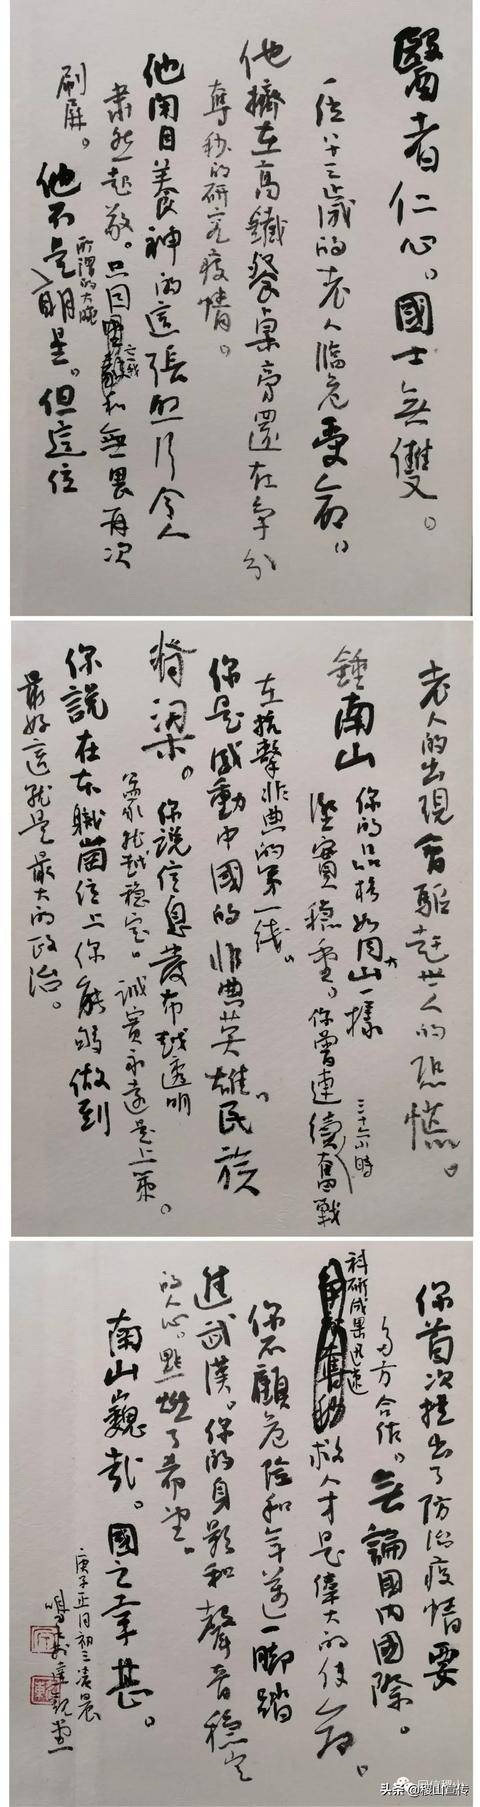 醫者仁心。國士無雙。
一位八十三歲的老人臨危受命。
他擠在高鐵餐桌旁還在爭分
奪秒的研究疫情。
他閉目養神的這張照片令人
肅然起敬。只因忠誠和無畏再次
刷屏。他不是所謂的大腕明星。但這位
老人的出現會驅趕世人的恐慌。
鍾南山你的品格如同大山一樣
堅實穩重。你曾連續奮戰三十六小時
在抗擊非典的第一线。
你是感動中國的非典英雄。民族
脊梁。你說信息發布越透明
就越穩定。誠實永遠是上策。
你說在本職崗位上你能夠做到
最好這就是最大的政治。
你首次提出了防治疫情要
多方合作。無論國内國際。
科研成果迅速救人才是偉大的使命。
你不顧危險和年邁一腳踏
進武漢。你的身影和聲音穩定
的人心。點燃了希望。
南山巍哉。國之幸甚。
庚子正月初三凌晨
头条@稷山宣传